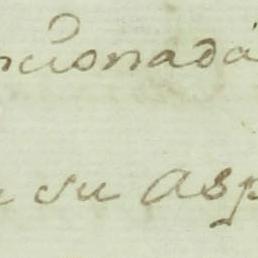 ncionada
su asp